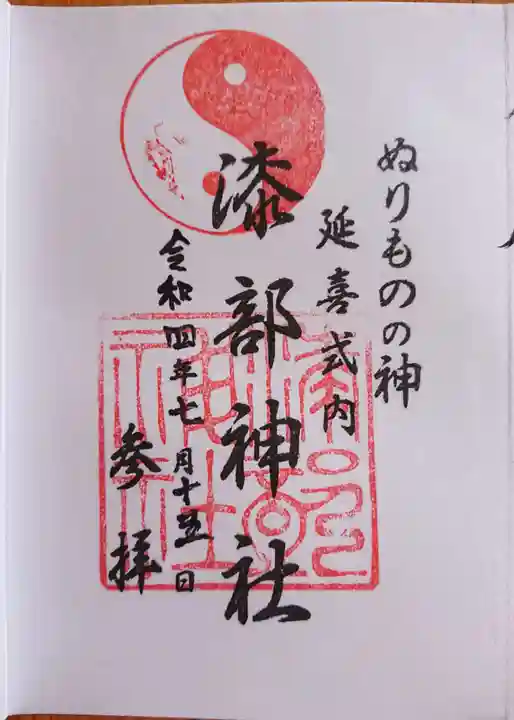 ぬりものの神
延喜式内
漆部神社
令和四年七月十五日
参拝
漆部
神社